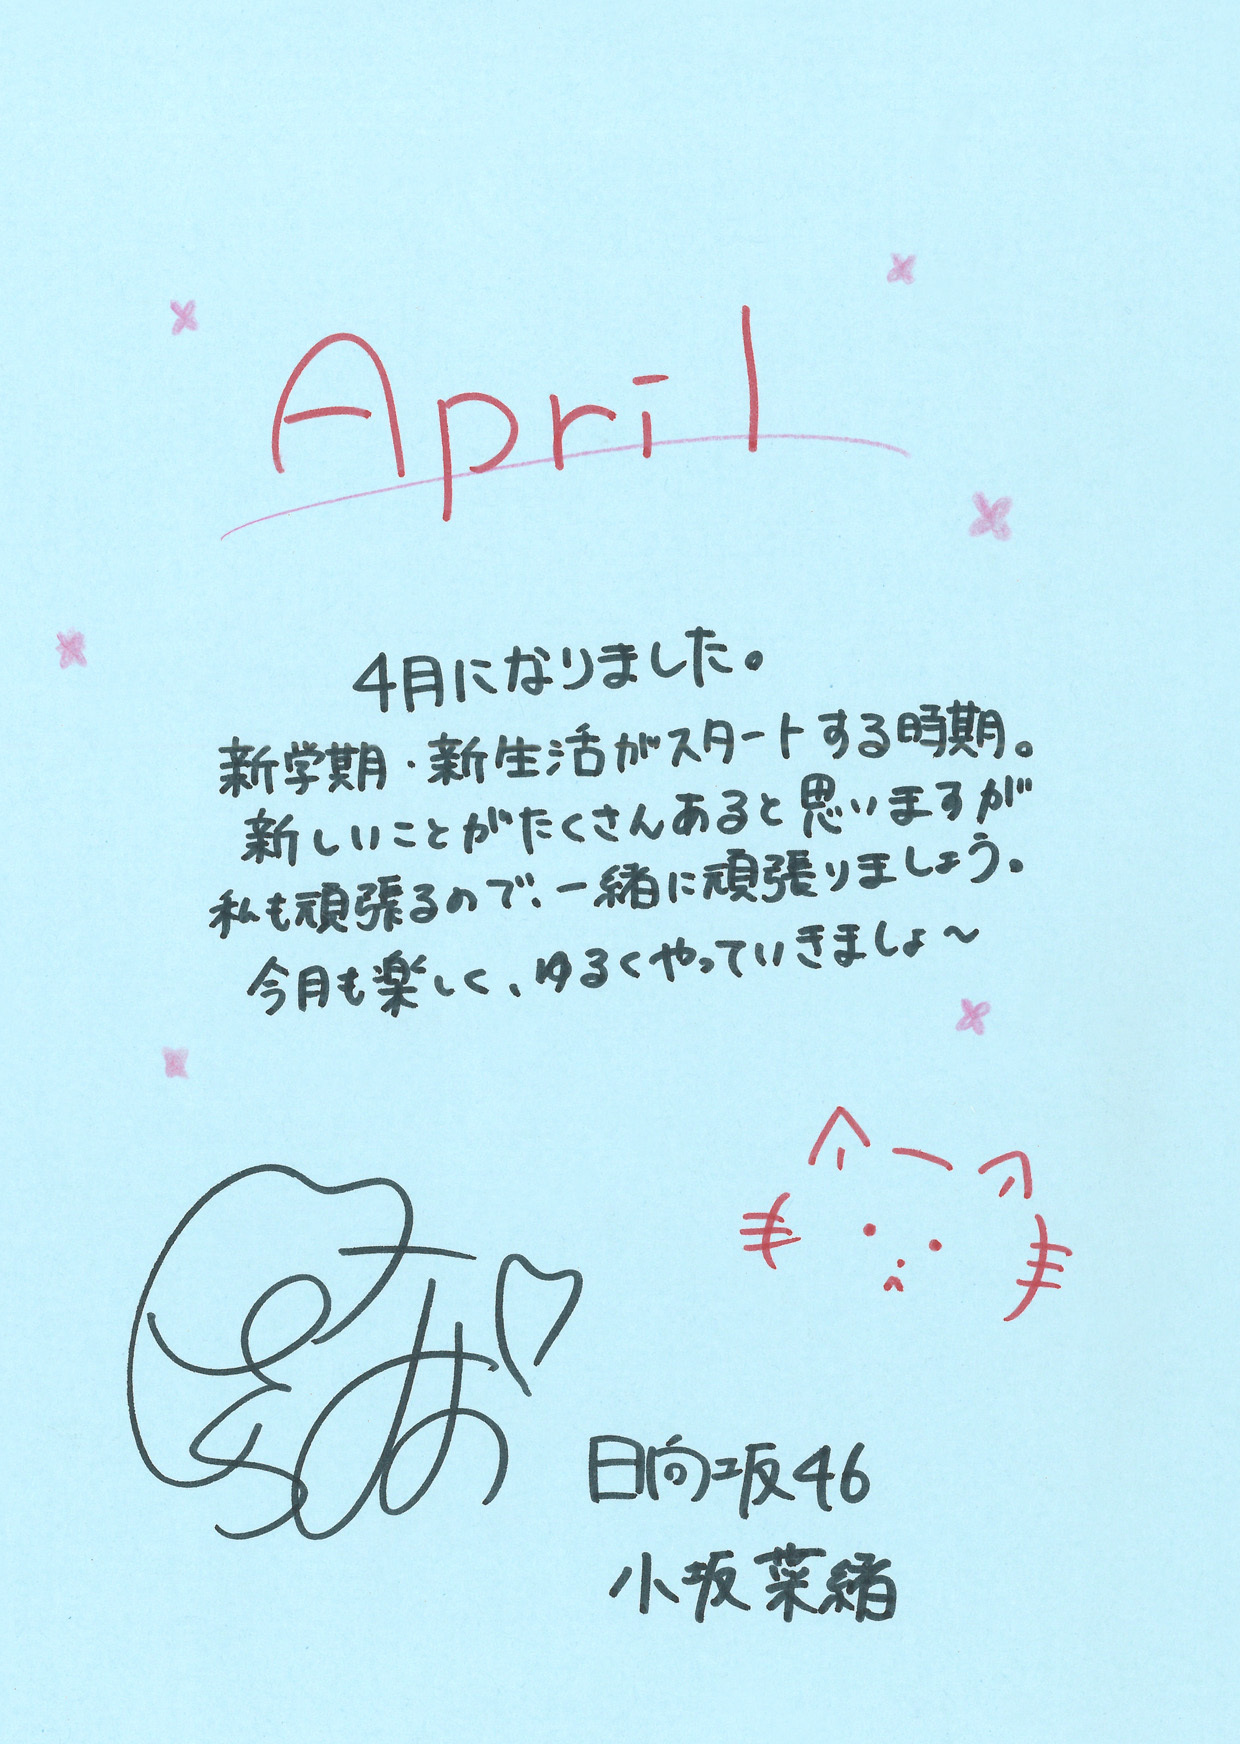 April
4月になりました。
新学期・新生活がスタートする時期。
新しいことがたくさんあると思いますが
私も頑張るので、一緒に頑張りましょう。
今月も楽しく、ゆるくやっていきましょ〜
日向坂46
小坂菜緒